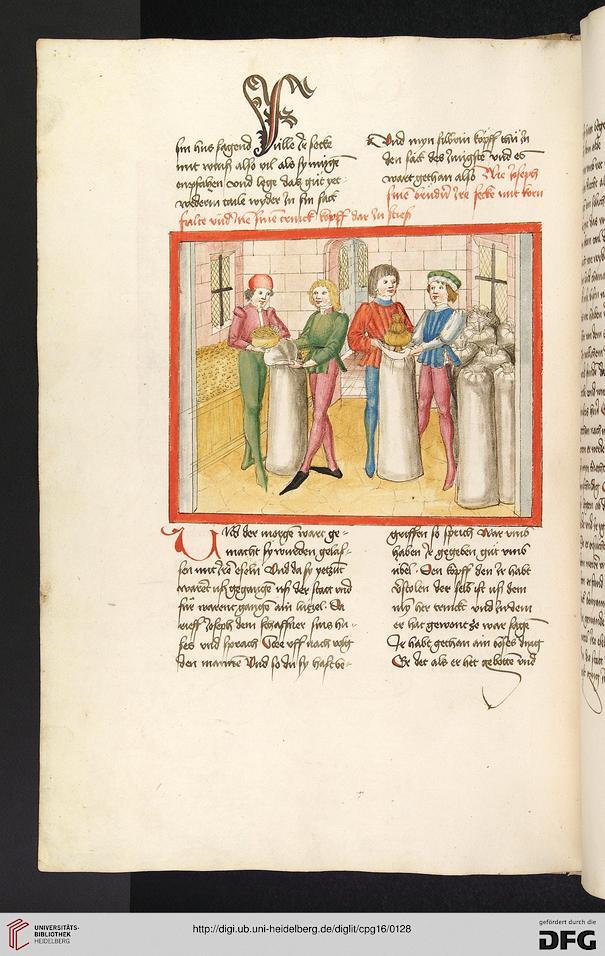 sin hus sagend Fülle ir secke
mit korn also vil als sy mügen
enpfahen vnd lege das gůt yet-
wederm taile wyder in sin sack
Vnd myn silbrin kopff thů in
den sack des Jungsten vnd es
wart gethan also Wie Joseph
sinen brüdern ire secke mit korn
falte vnd sinen trinck kopff dar in stiess
Vnd der morge wart ge-
macht sy wurden gelas-
sen mit iren eseln Vnd da sy yetzůt
waren vß gegangen vß der statt vnd
für waren gangen ain lützel Da
rieff Joseph dem schaffner sins hu-
ses vnd sprach Stee vff nach volg
den mannen Vnd so du sy hast be-
griffen so sprich War vmb
haben ir gegeben gůt vmb
übel Den kopff den ir habt
verstolen der selb ist vß dem
myn her trinckt vnd in dem
er hat gewonet ze war sagen
Ir habt gethan ain böses ding
Er det als er het gebotten vnd
UNIVERSITÄTS-
BIBLIOTHEK
HEIDELBERG
http://digi.ub.uni-heidelberg.de/diglit/cpg16/0128
gefördert durch die
DFG